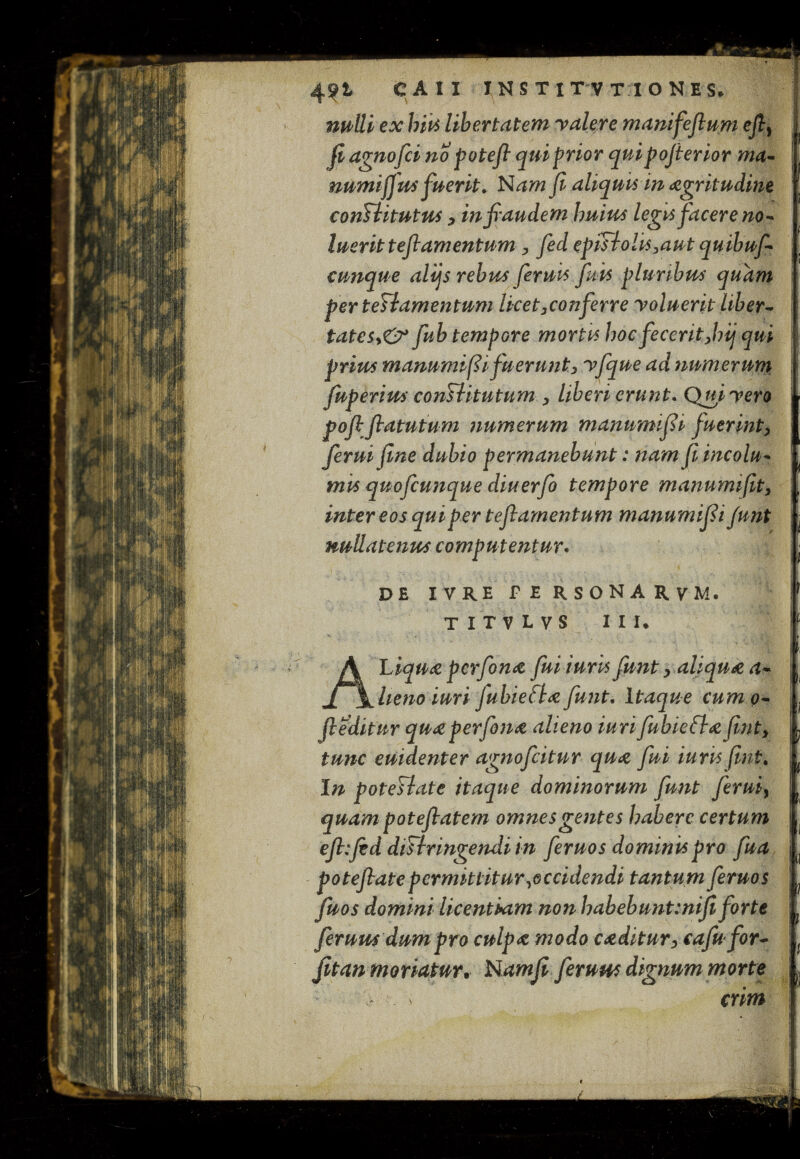 492 CAII INSTITVTIONES.
nulli ex hiis libertatem valere manifeſtum eſt,
ſi agnoſci nō poteſt qui prior qui poſterior ma-
numiſſus fuerit. Nam ſi aliquis in ægritudine
conſtitutus, in fraudem huius legis facere no-
luerit teſtamentum, ſed epiſtolis, aut quibuſ-
cunque alijs rebus ſeruis ſuis pluribus quàm
per teſtamentum licet, conferre voluerit liber-
tates, & ſub tempore mortis hoc fecerit, hij qui
prius manumiſsi fuerunt, vſque ad numerum
ſuperius conſtitutum, liberi erunt. Qui vero
poſt ſtatutum numerum manumiſsi fuerint,
ſerui ſine dubio permanebunt: nam ſi incolu-
mis quoſcunque diuerſo tempore manumiſit,
inter eos qui per teſtamentum manumiſsi ſunt
nullatenus computentur.
DE IVRE PERSONARVM.
TITVLVS III.
ALiquæ perſonæ ſui iuris ſunt, aliquæ a-
lieno iuri ſubiectæ ſunt. Itaque cum o-
ſtēditur quæ perſonæ alieno iuri ſubiectæ ſint,
tunc euidenter agnoſcitur quæ ſui iuris ſint.
In poteſtate itaque dominorum ſunt ſerui,
quam poteſtatem omnes gentes habere certum
eſt: ſed diſtringendi in ſeruos dominis pro ſua
poteſtate permittitur, occidendi tantum ſeruos
ſuos domini licentiam non habebunt: niſi forte
ſeruus dum pro culpæ modo cæditur, caſu for-
ſitan moriatur. Nam ſi ſeruus dignum morte
crim